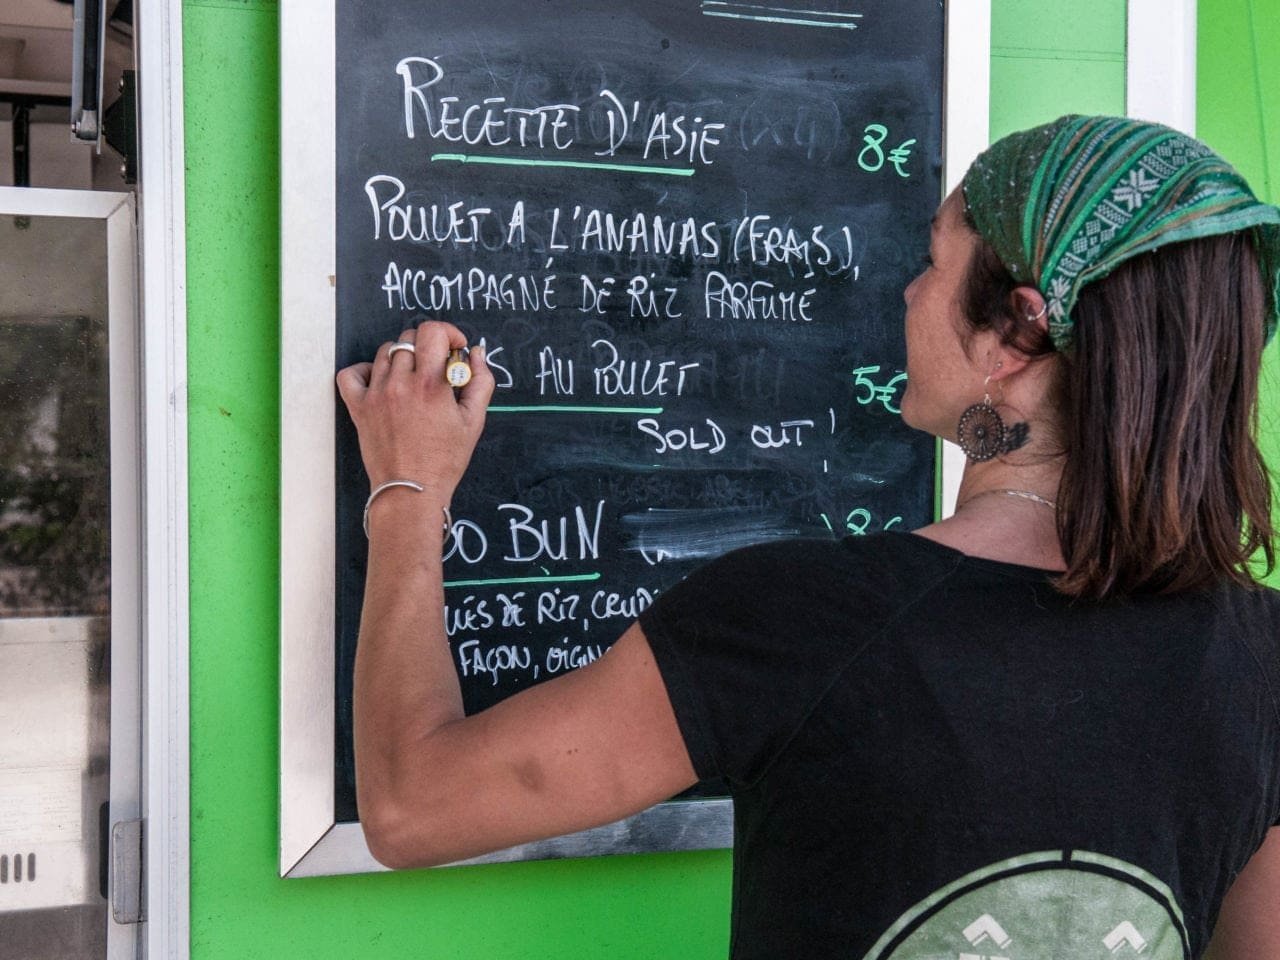 RECETTE D'ASIE (x4) 8€
POULET A L'ANANAS (FRAIS),
ACCOMPAGNÉ DE RIZ PARFUMÉ
AU POULET 5€
SOLD OUT !
BO BUN 8€
DE RIZ,
FAÇON,